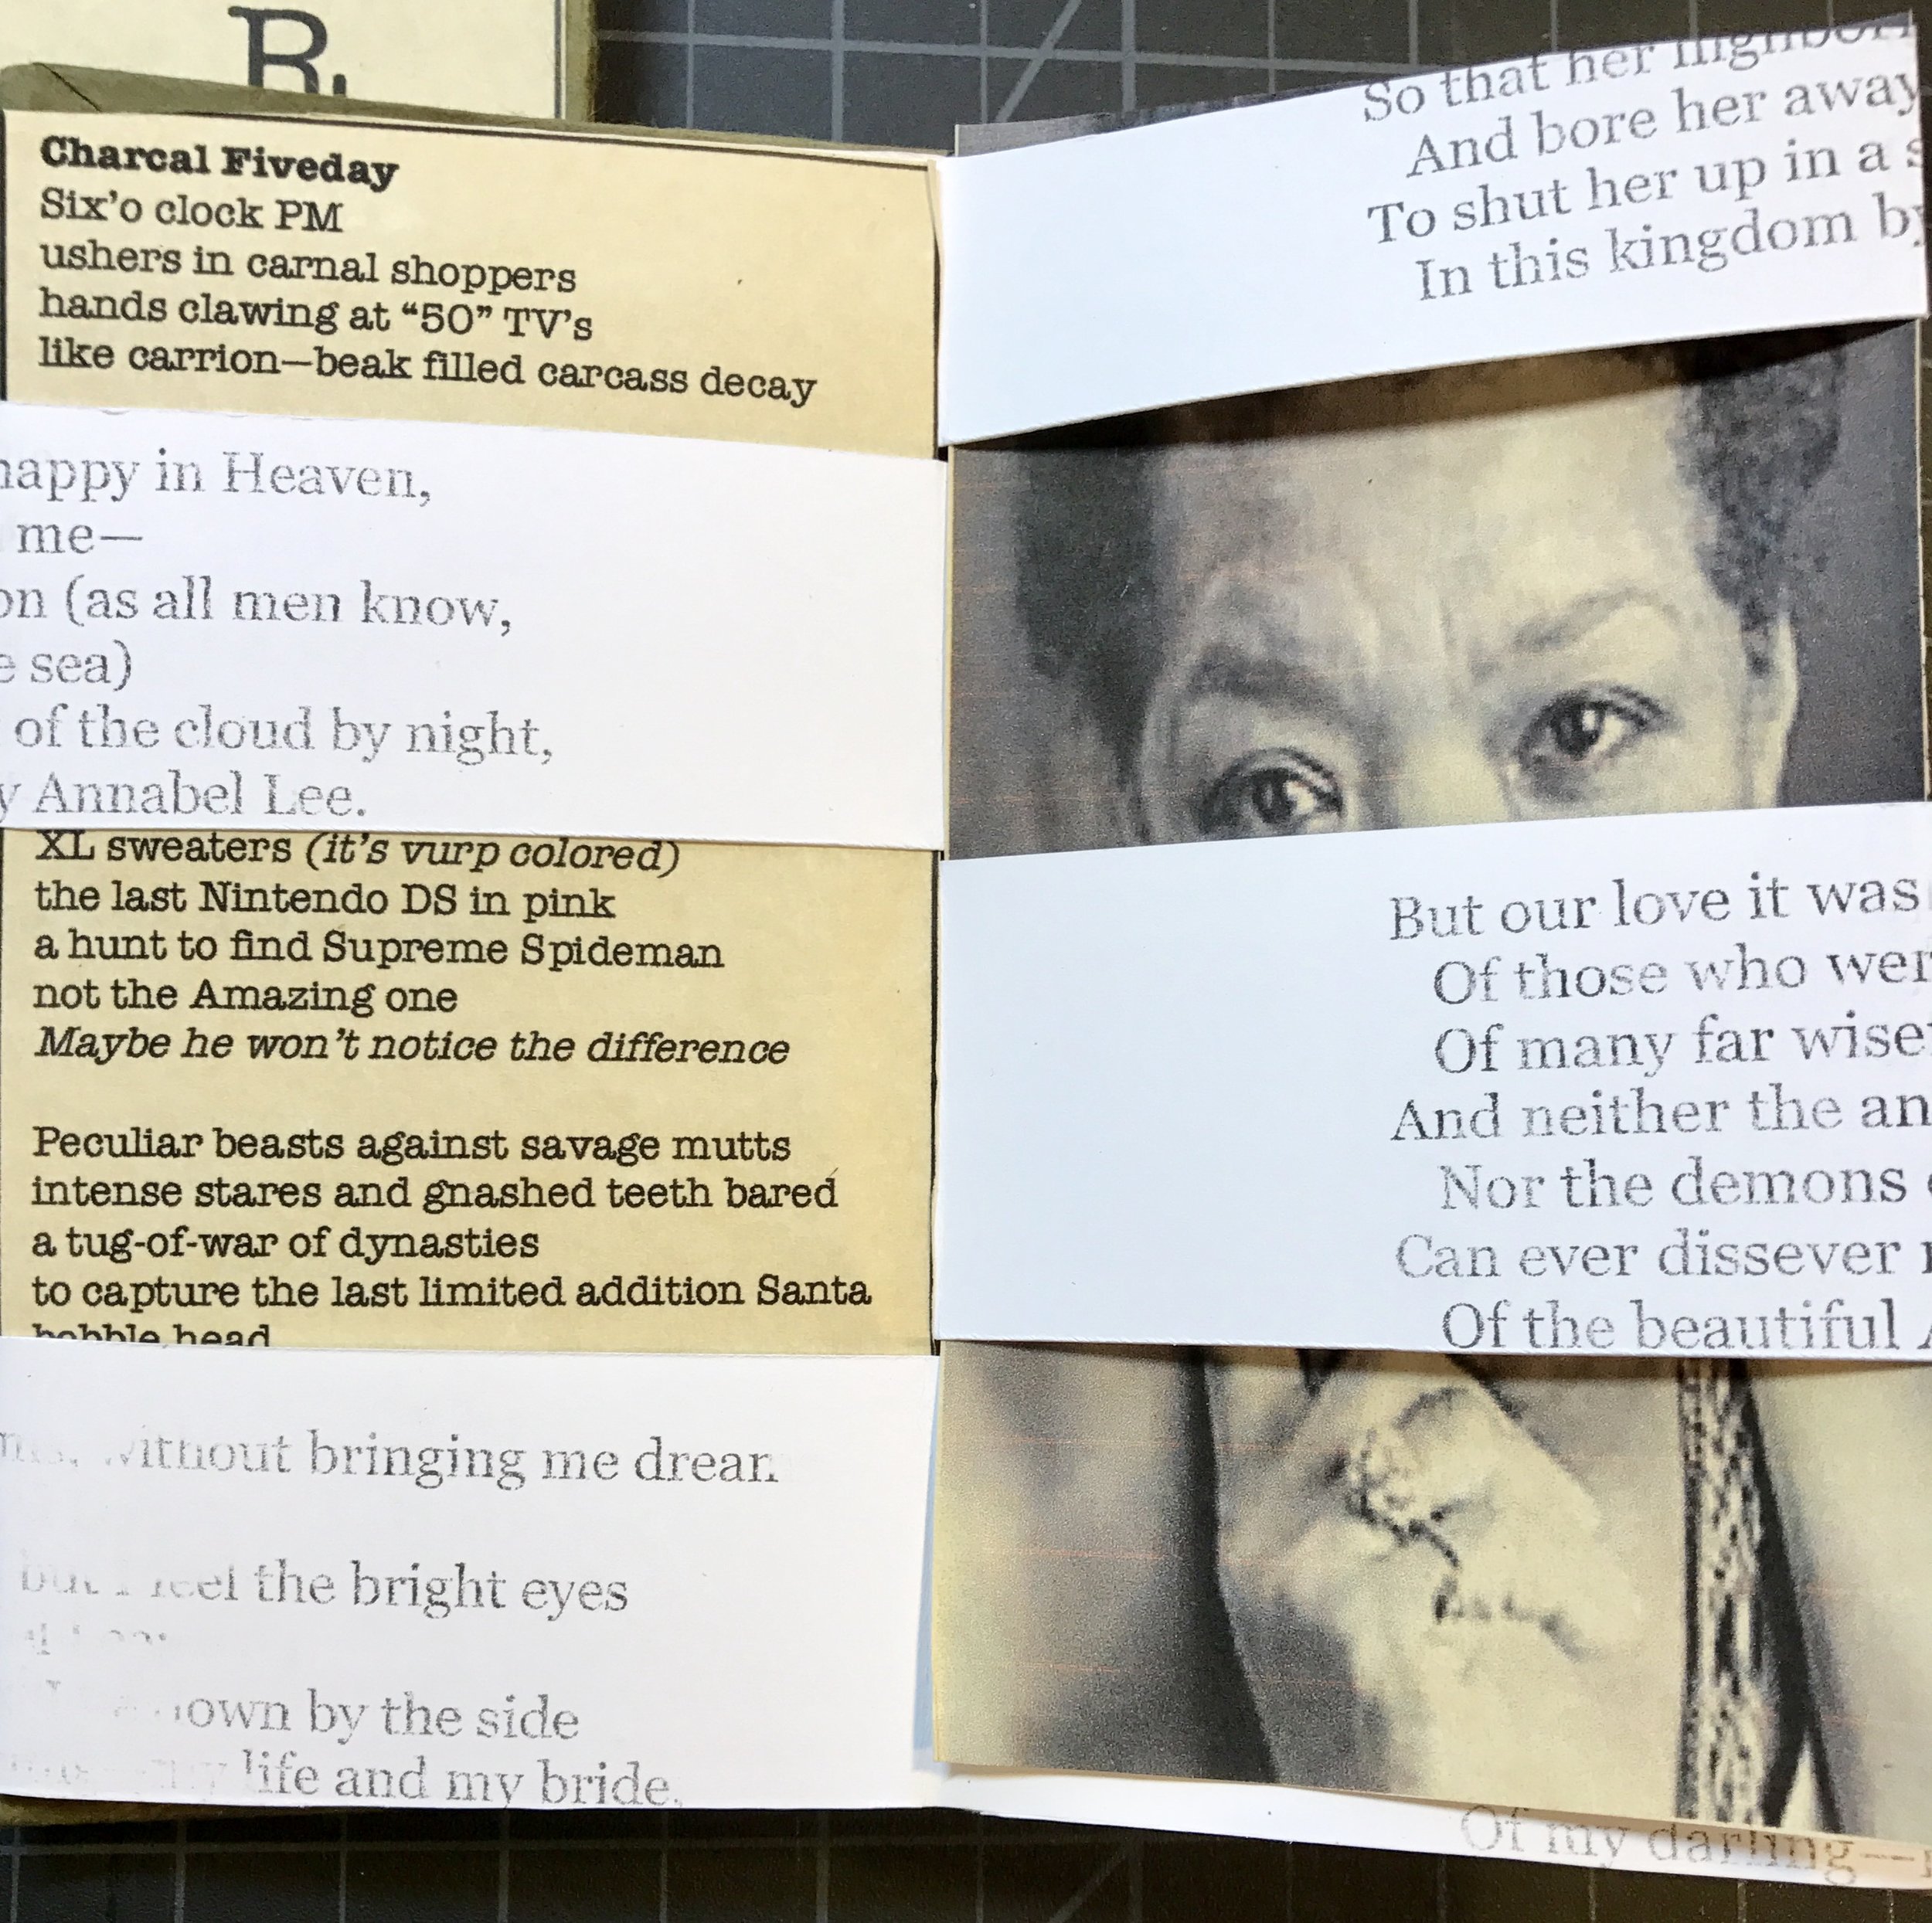 R.
Charcal Fiveday
Six'o clock PM
ushers in carnal shoppers
hands clawing at “50” TV's
like carrion—beak filled carcass decay
happy in Heaven,
me—
on (as all men know,
sea)
of the cloud by night,
Annabel Lee.
XL sweaters (it's vurp colored)
the last Nintendo DS in pink
a hunt to find Supreme Spideman
not the Amazing one
Maybe he won't notice the difference
Peculiar beasts against savage mutts
intense stares and gnashed teeth bared
a tug-of-war of dynasties
to capture the last limited addition Santa
bobble head
without bringing me
but I feel the bright eyes
by the side
life and my bride.
So that her
And bore her away
To shut her up in a
In this kingdom by
But our love it was
Of those who wer
Of many far wise
And neither the an
Nor the demons
Can ever dissever
Of the beautiful
Of my darling—